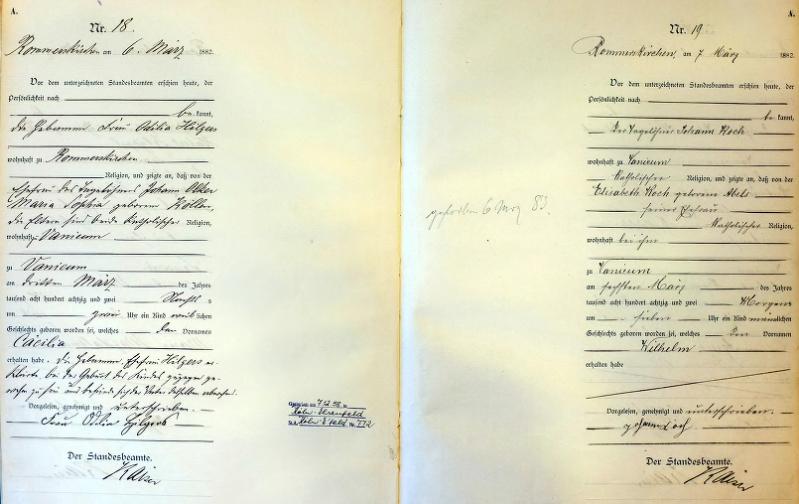 A.
Nr. 18.
Rommerskirchen am 6. März 1882.
Vor dem unterzeichneten Standesbeamten erschien heute, der
Persönlichkeit nach
be kannt,
die Hebamme Frau Odilia Hilgers
wohnhaft zu Rommerskirchen
Religion, und zeigte an, daß von der
Ehefrau des Tagelöhners Johann
Maria Sophia geborene Köllen,
die Eltern sind beide katholischer Religion,
wohnhaft zu Vanicum
zu Vanicum
am dritten März des Jahres
tausend acht hundert achtzig und zwei
um zwei Uhr ein Kind weiblichen
Geschlechts geboren worden sei, welches den Vornamen
Cäcilia
erhalten habe. Die Hebamme, Ehefrau Hilgers er-
klärte bei der Geburt des Kindes zugegen ge-
wesen zu sein und
Vorgelesen, genehmigt und unterschrieben.
Frau Odilia Hilgers
Der Standesbeamte.
Kaiser
Köln-Ehrenfeld
A.
Nr. 19
Rommerskirchen, am 7 März 1882.
Vor dem unterzeichneten Standesbeamten erschien heute, der
Persönlichkeit nach
be kannt,
Der Tagelöhner Johann Koch
wohnhaft zu Vanicum
katholischer Religion, und zeigte an, daß von der
Elisabeth Koch geborene Abels
seiner Ehefrau
katholischer Religion,
wohnhaft bei ihm
zu Vanicum
am sechsten März des Jahres
tausend acht hundert achtzig und zwei Morgens
um sieben Uhr ein Kind männlichen
Geschlechts geboren worden sei, welches den Vornamen
Wilhelm
erhalten habe
Vorgelesen, genehmigt und unterschrieben.
Johann Koch
Der Standesbeamte.
Kaiser
gestorben 6 März 83.